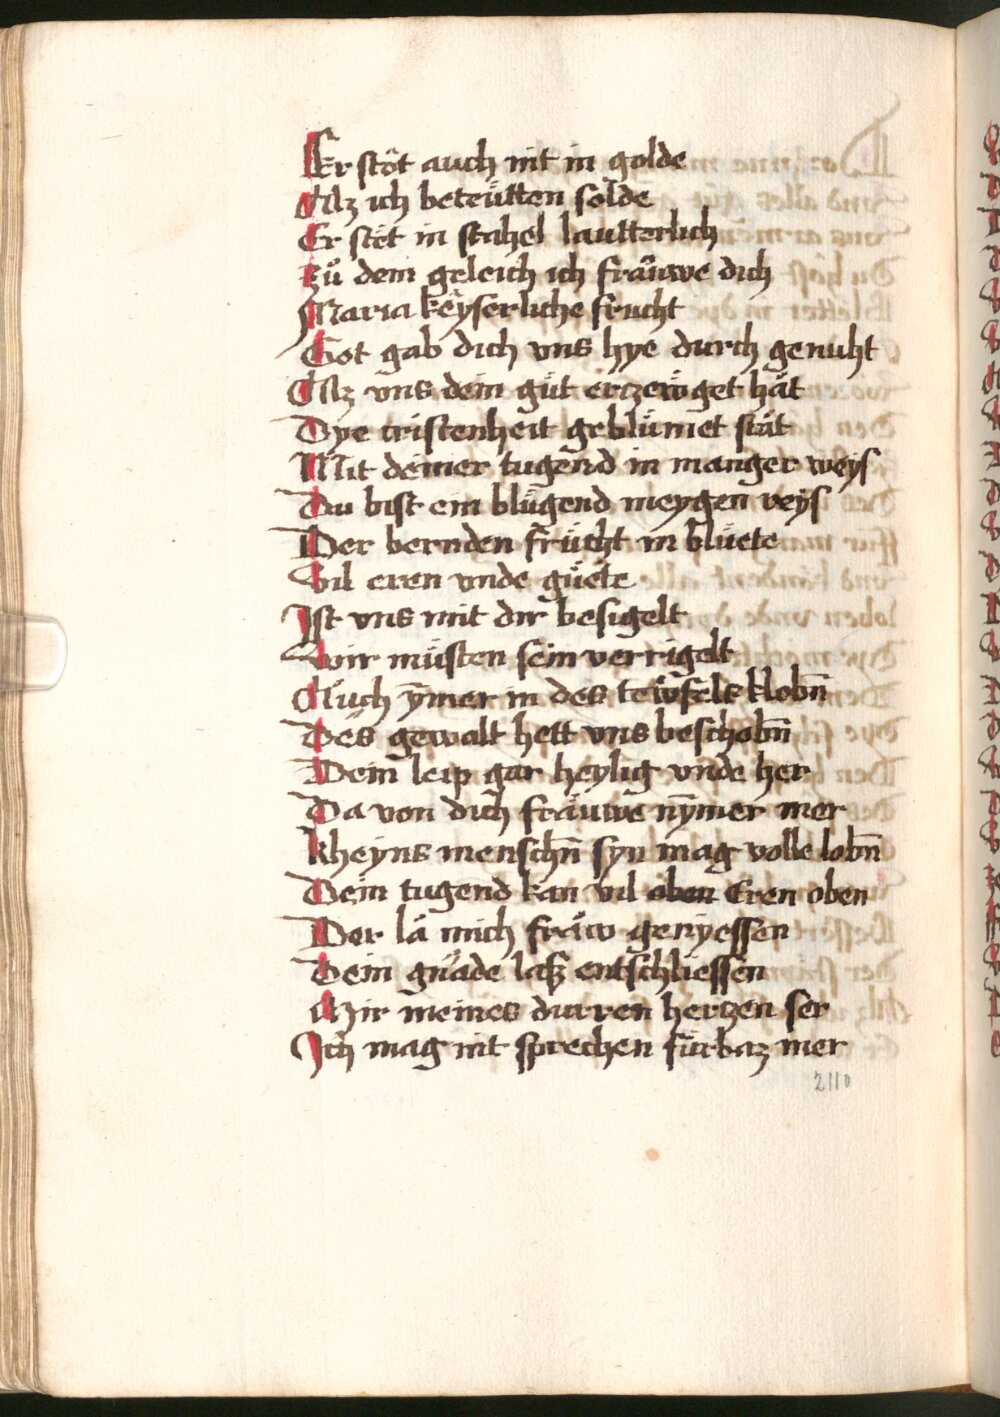 Er stöt auch nit in golde
Alz ich beteütten solde
Er stet in stahel lautterlich
Zů dem geleich ich fraüwe dich
Maria keyserliche frucht
Got gab dich vns hye durch genuht
Alz vns dein güt erzewget hät
Dye cristenheit geblümet stät
Mit deiner tugend in manger weys
Du bist ein blügend meygen reys
Der bernden frücht in blüete
Vil eren vnde güete
Ist vns mit dir besigelt
Wir müsten sein verrigelt
Auch ymer in des tewfels klobn̄
Des gewalt hett vns beschobn̄
Dein leip gar heylig vnde her
Da von dich fräuwe nymer mer
kheyns menschn̄ syn mag volle lobn̄
Dein tugend kan vil oben Eren oben
Der lä mich fräw genyessen
Dein gnade laß entschliessen
Mir meines durren hertzen ser
Ich mag nit sprechen fürbaz mer
2110